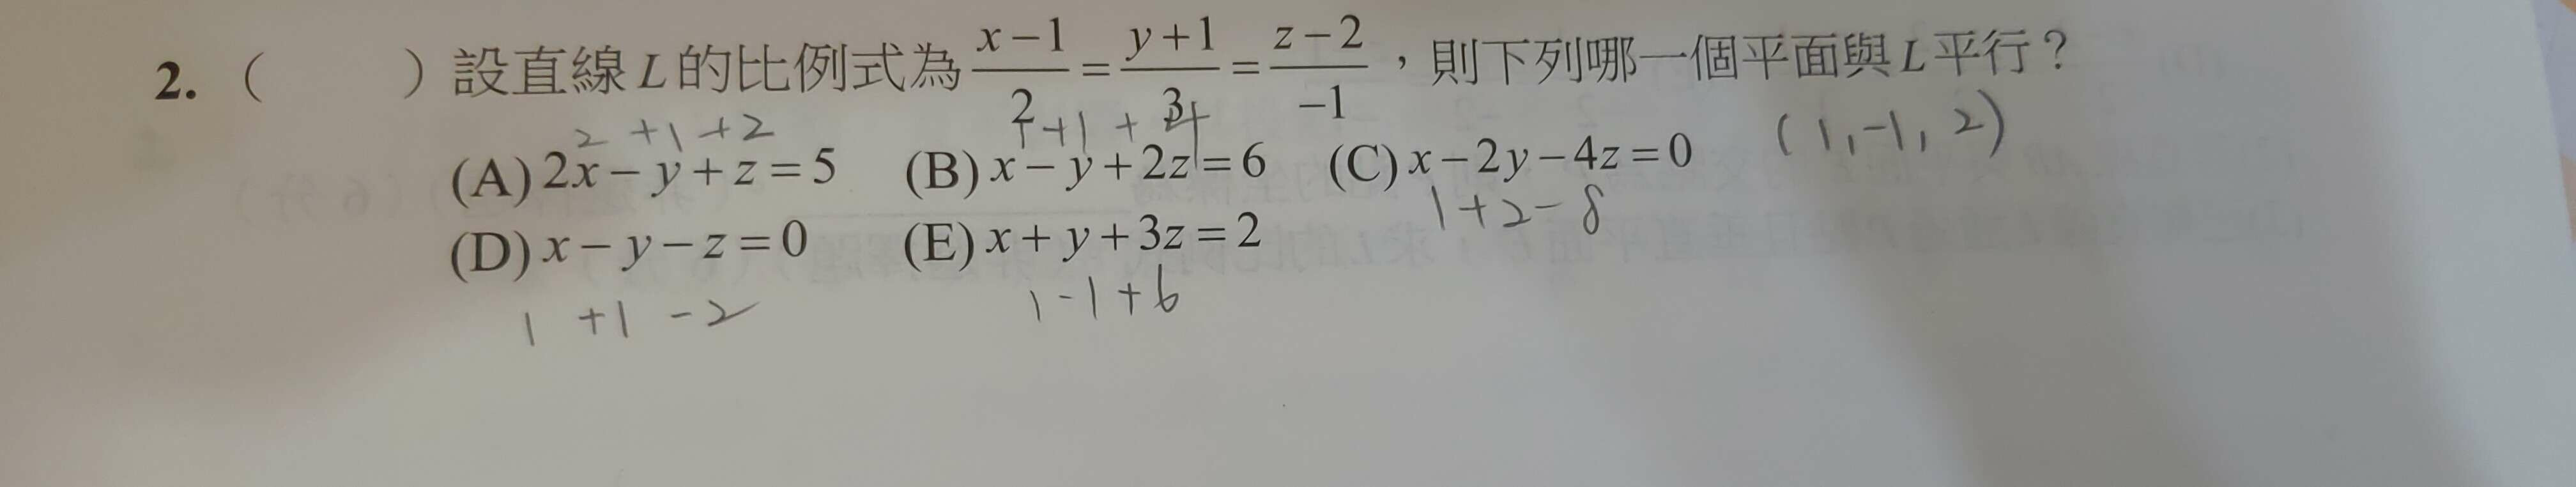 2. (      ) 設直線 L 的比例式為 \frac{x-1}{2} = \frac{y+1}{3} = \frac{z-2}{-1}，則下列哪一個平面與 L 平行？
2 +1 +2    1+1+4    (1,-1,2)
(A) 2x-y+z=5 (B) x-y+2z=6 (C) x-2y-4z=0
1+2-8
(D) x-y-z=0 (E) x+y+3z=2
1 +1 -2    1-1+6